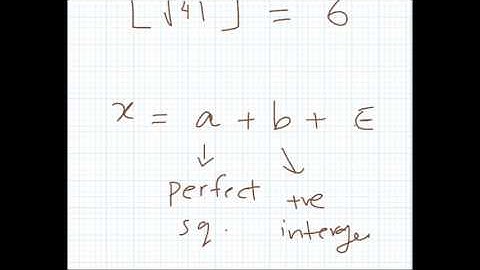 ⌊√41⌋ = 6
x = a + b + ∈
perfect +ve
sq. interge